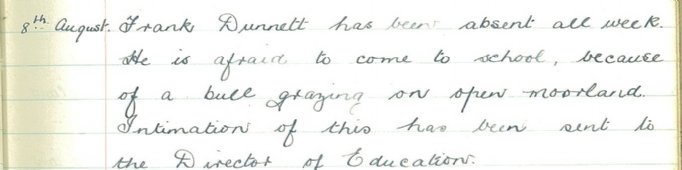 8th August. Frank Dunnett has been absent all week.
He is afraid to come to school, because
of a bull grazing on open moorland.
Intimation of this has been sent to
the Director of Education.